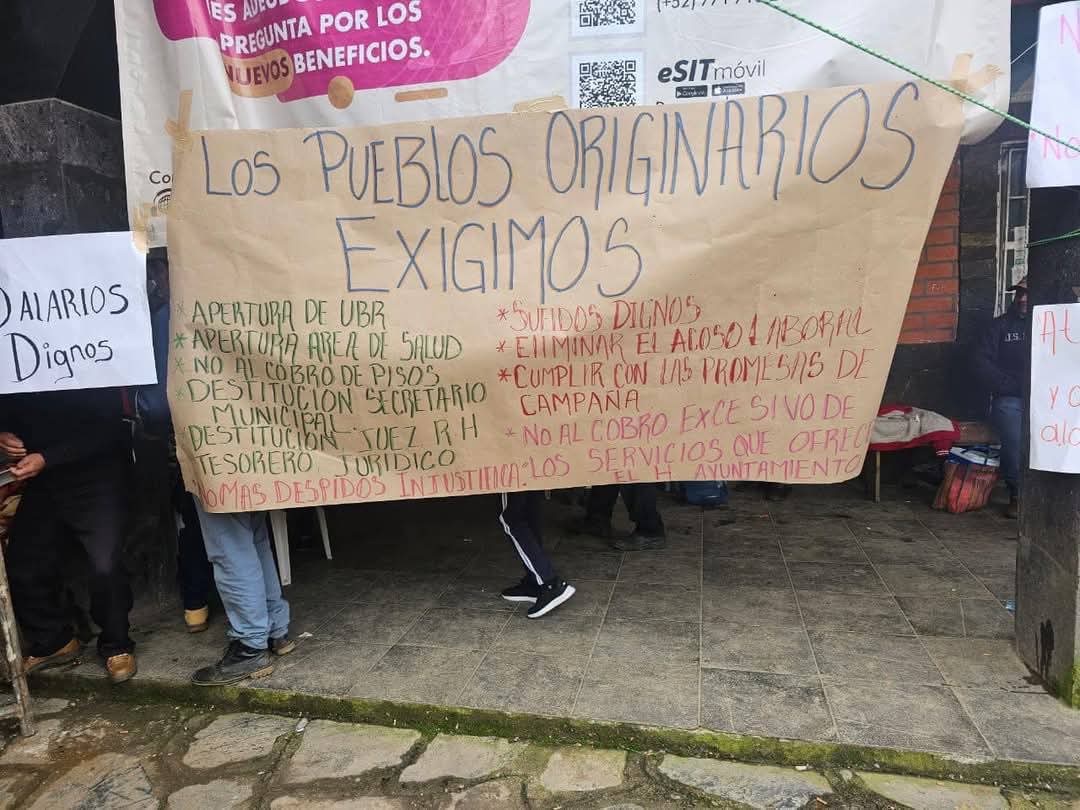 ES ADEUDOS
PREGUNTA POR LOS
NUEVOS BENEFICIOS.
(+52) 771
eSIT móvil
LOS PUEBLOS ORIGINARIOS
EXIGIMOS
* APERTURA DE UBR
* APERTURA AREA DE SALUD
* NO AL COBRO DE PISOS
* DESTITUCIÓN SECRETARIO
MUNICIPAL
DESTITUCIÓN JUEZ R H
TESORERO JURIDICO
NO MAS DESPIDOS INJUSTIFICA.
* SUELDOS DIGNOS
* ELIMINAR EL ACOSO LABORAL
* CUMPLIR CON LAS PROMESAS DE
CAMPAÑA
* NO AL COBRO EXCESIVO DE
LOS SERVICIOS QUE OFREC
EL H AYUNTAMIENTO
ALARIOS
Dignos
N
No
y